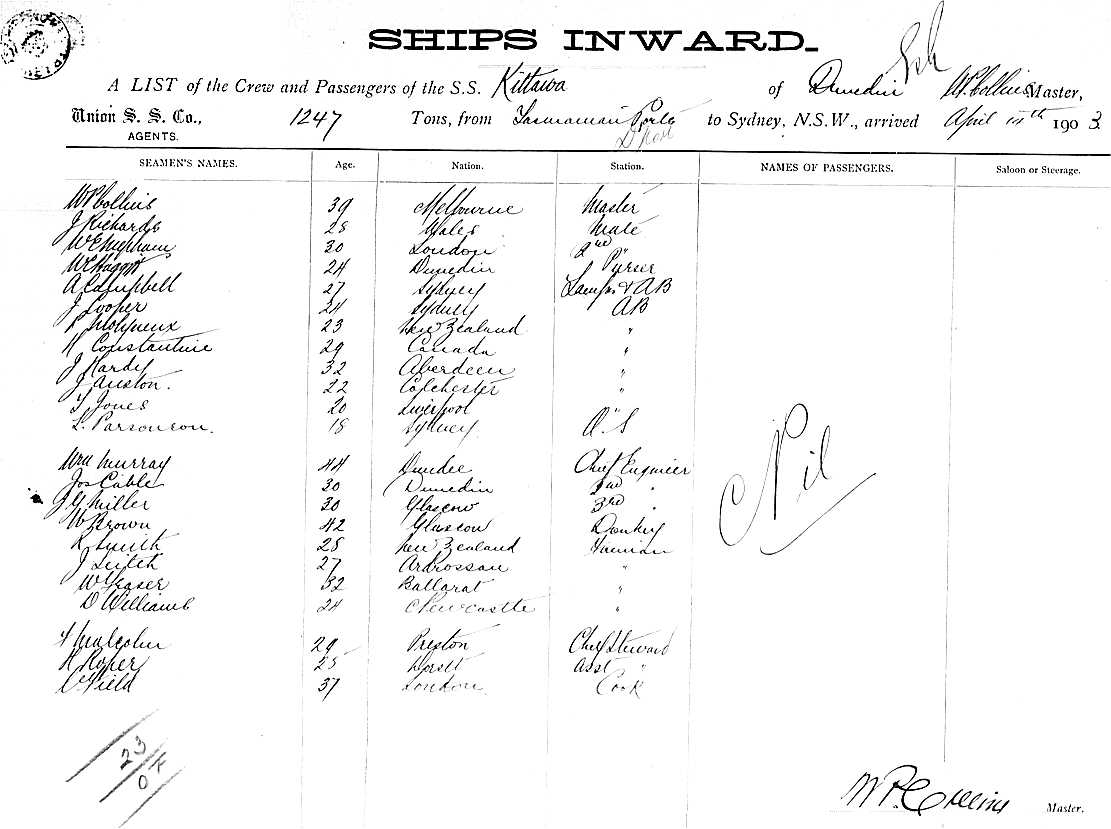 SHIPS INWARD.
A LIST of the Crew and Passengers of the S.S. Kittawa of Dunedin W.P. Collins Master,
Union S. S. Co., 1247 Tons, from Tasmanian Ports to Sydney, N.S.W., arrived April 1903
AGENTS.
SEAMEN'S NAMES. Age. Nation. Station. NAMES OF PASSENGERS. Saloon or Steerage.
W P Collins 39 Melbourne Master
J Richards 28 Wales Mate
W E 30 London 2nd "
W 24 Dunedin Purser
A Campbell 27 Sydney Lamps & AB
J Cooper 24 Sydney AB
Molyneux 23 New Zealand "
Constantine 29 Canada "
J Hardy 32 Aberdeen "
J Auston. 22 Colchester "
T Jones 20 Liverpool "
L. Parsonson. 18 Sydney O.S
Wm Murray 44 Dundee Chief Engineer
Jos Cable 30 Dunedin 2nd "
J G Miller 30 Glascow 3rd "
W Brown 42 Glascow Donkey
Smith 28 New Zealand Fireman
J Leitch 27 Ardrossan "
W Fraser 32 Ballarat "
D Williams 24 Newcastle "
Malcolm 29 Preston Chef Steward
Roper 25 Dorsett Asst "
Field 37 London Cook
Nil
23
0
W P. Collins Master.